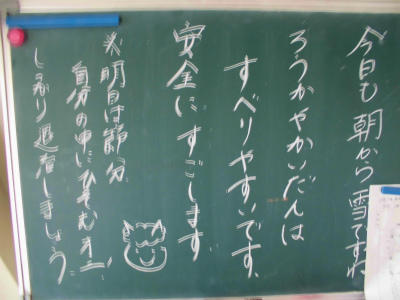 今日も朝から雪ですね
ろうかやかいだんは
すべりやすいです、
安全にすごします
※明日は節分
自分の中にひそむオニ
しっかり退治しましょう